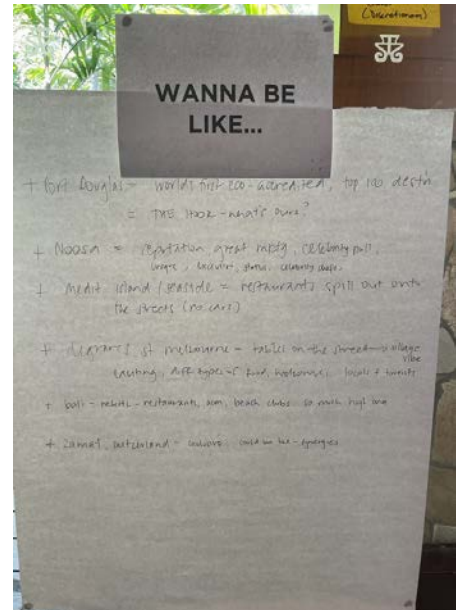 (Discretionary)
WANNA BE
LIKE...
+ Port Douglas - world's first eco-accredited, top 100 destn
= THE HOOK - what's ours?
+ Noosa = reputation great mktg, celebrity pull,
status, celebrity chefs.
+ Medit island / seaside = restaurants spill out onto
the streets (no cars)
+ degraves st melbourne - tables on the street - village
vibe
diff types of food, locals + tourists
+ bali - restaurants, beach clubs, so much high end
+ switzerland - could be like - synergies